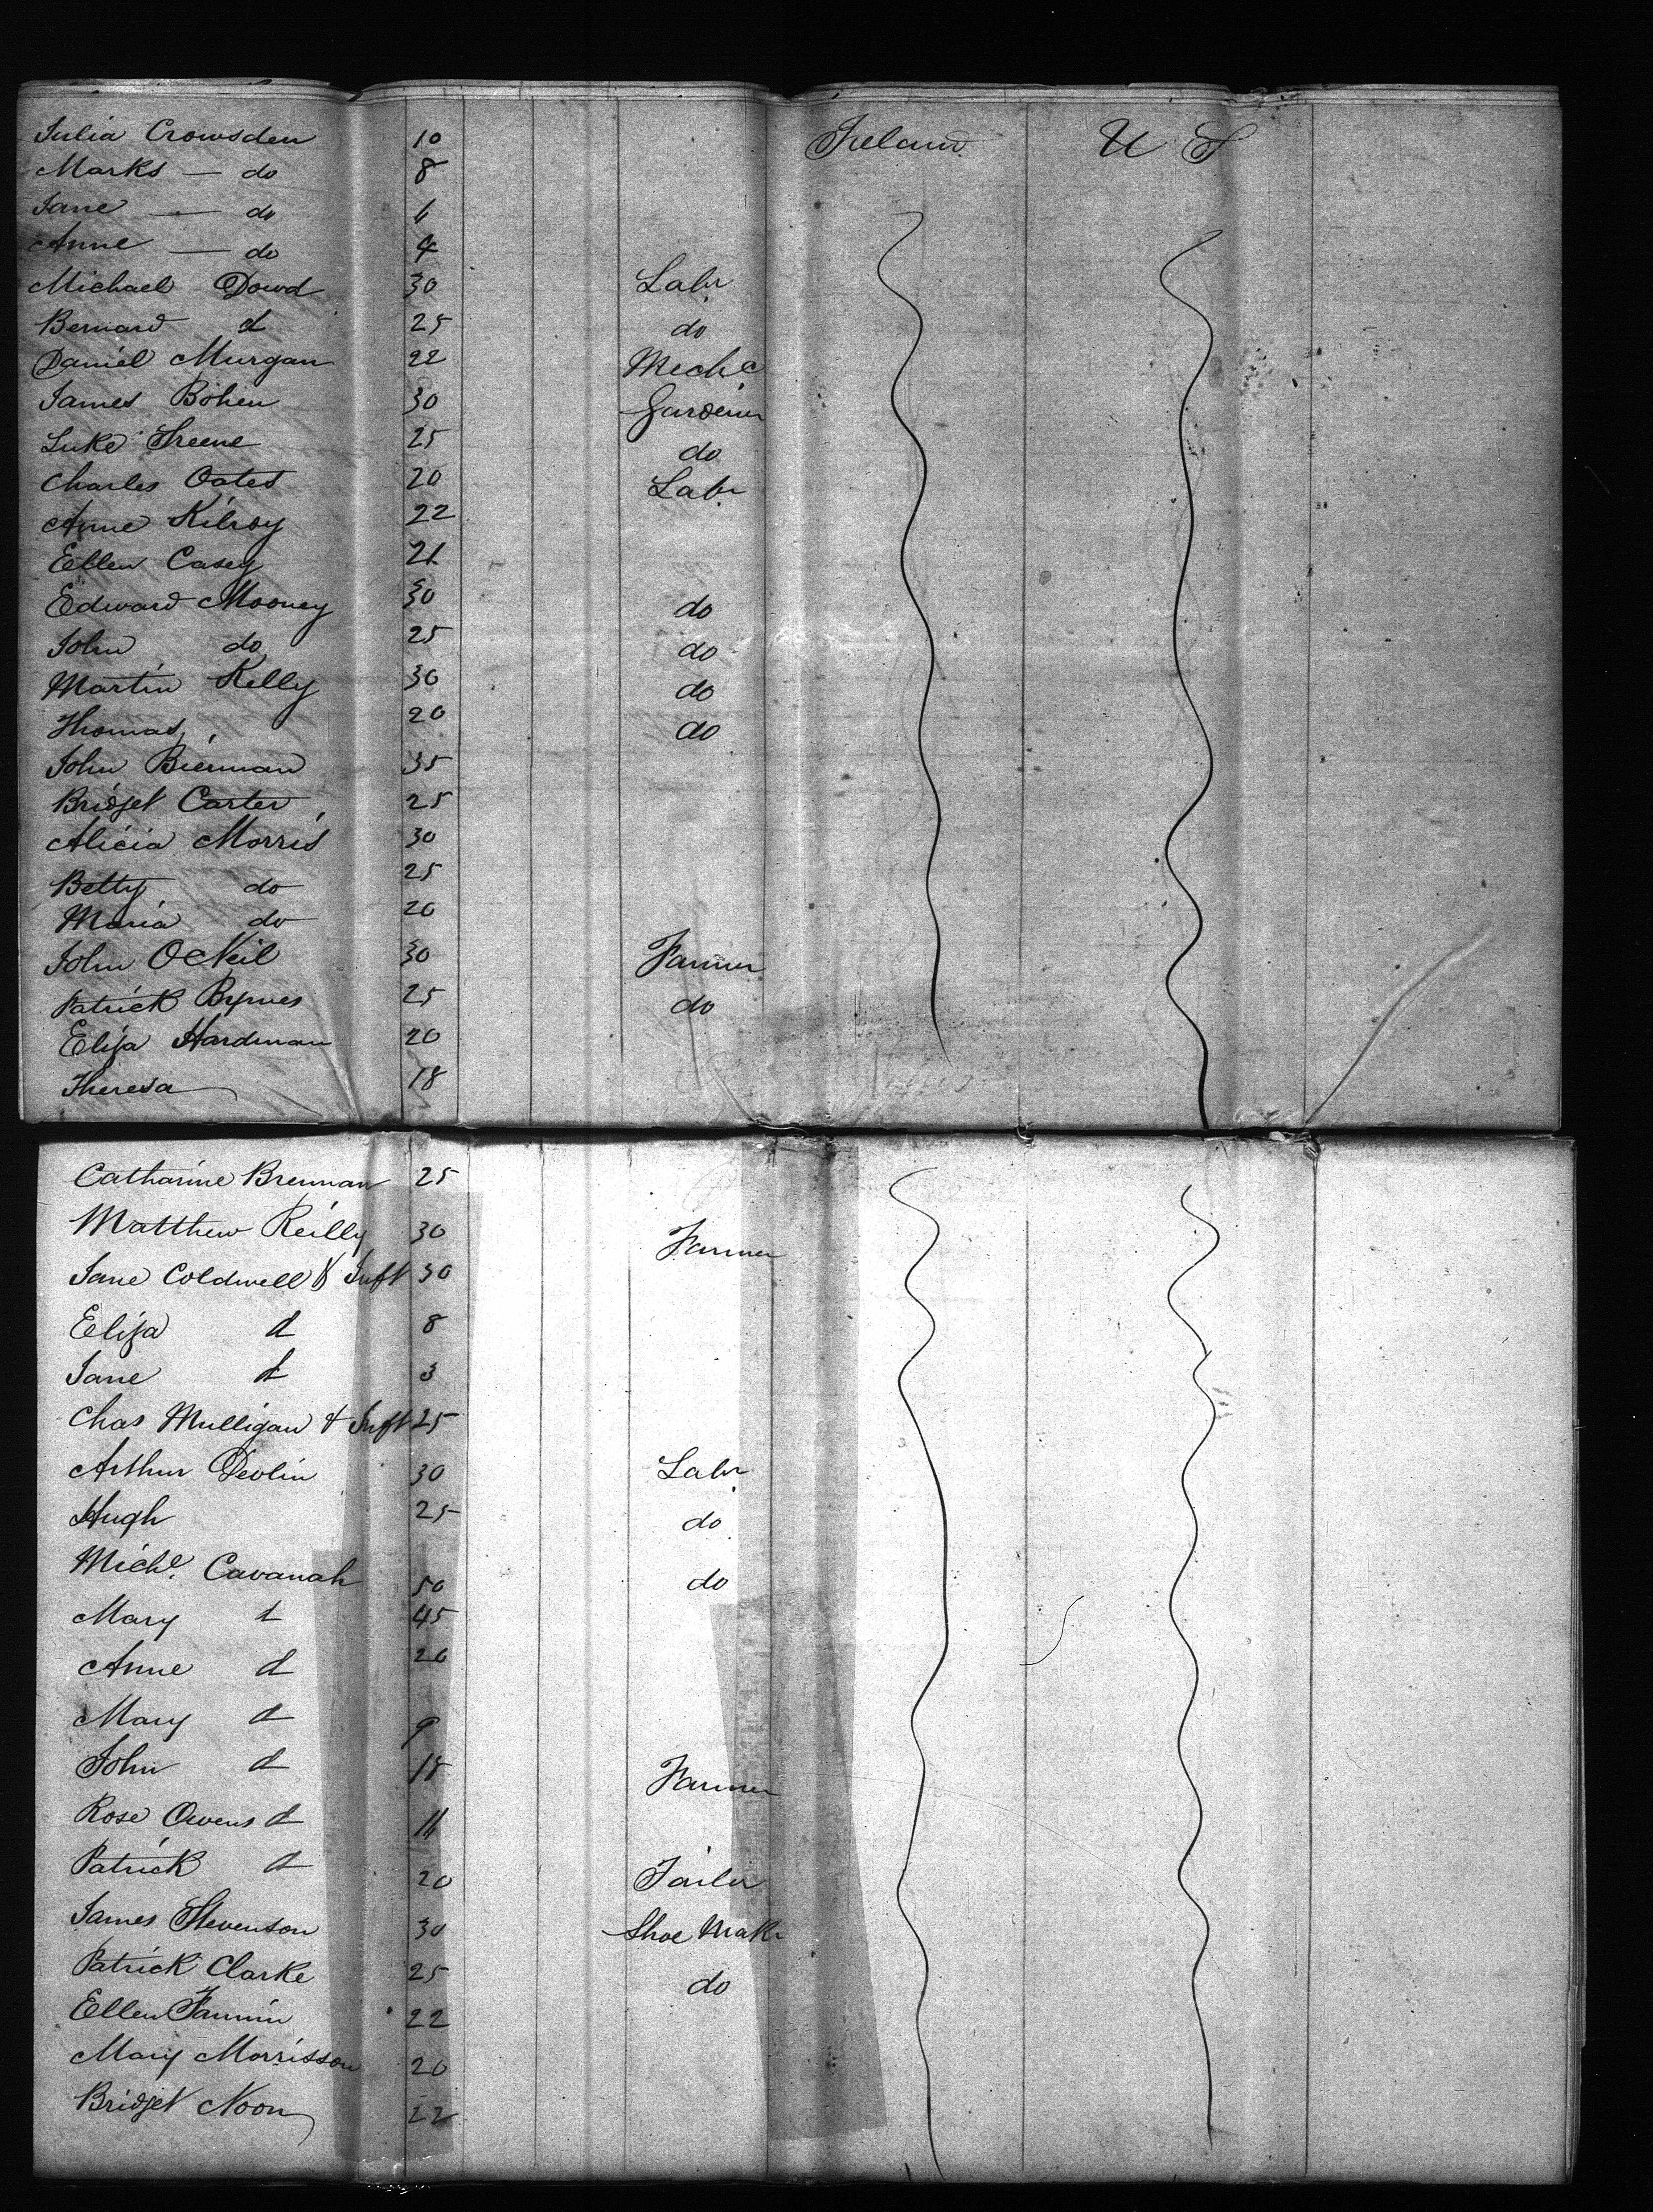 Julia Crowsden 10 Ireland U S
Marks — do 8
Jane — do 6
Anne — do 4
Michael Dowd 30 Labr
Bernard d 25 do
Daniel Murgan 22 Mechc
James Bohen 30 Gardener
Luke Greene 25 do
Charles Oates 20 Labr
Anne Kilroy 22
Ellen Casey 21
Edward Mooney 30 do
John do 25 do
Martin Kelly 30 do
Thomas 20 do
John Bierman 35
Bridget Carter 25
Alicia Morris 30
Betty do 25
Maria do 20
John ONeil 30 Farmer
Patrick Byrnes 25 do
Eliza Hardman 20
Theresa 18
Catharine Brennan 25
Matthew Reilly 30 Farmer
Jane Coldwell & Inft 30
Eliza d 8
Jane d 3
Chas Mulligan & Inft 25
Arthur Devlin 30 Labr
Hugh 25 do
Michl. Cavanah 50 do
Mary d 45
Anne d 20
Mary d 9
John d 18 Farmer
Rose Owens d 11
Patrick d 20 Tailor
James Stevenson 30 Shoe Makr
Patrick Clarke 25 do
Ellen Fannin 22
Mary Morrisson 20
Bridget Noon 22